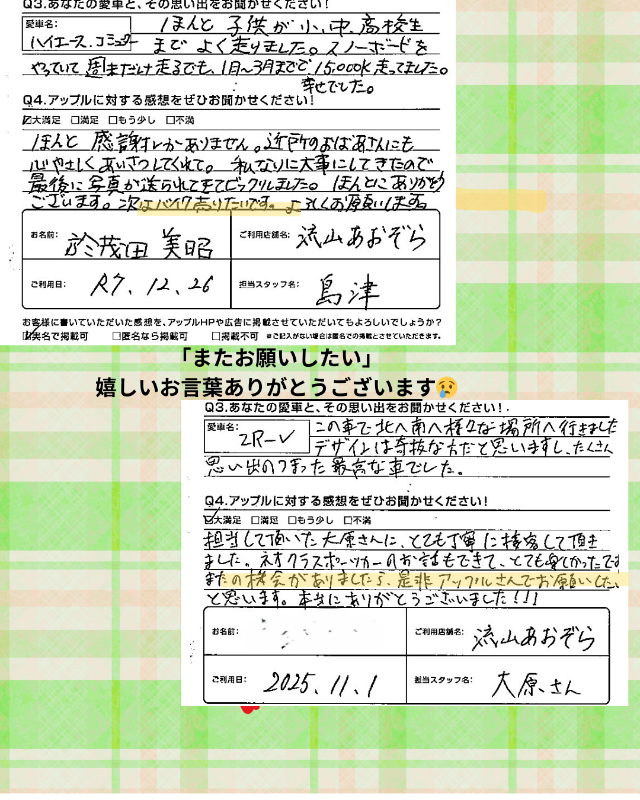 Q3.あなたの愛車と、その思い出をお聞かせください!
愛車名:
ハイエース.コミューター
ほんと 子供が小、中、高校生
まで よく走りました。スノーボードを
やっていて 週末だけ走るでも、1日~3月までで、15,000K走ってました。
幸せでした。
Q4.アップルに対する感想をぜひお聞かせください!
☑大満足 □満足 □もう少し □不満
ほんと 感謝しかありません。近所のおばあさんにも
心やさしくあいさつしてくれて。私なりに大事にしてきたので
最後に写真が送られてきてビックリしました。ほんとにありがとう
ございます。次はバイク売りたいです。よろしくお願いします
お名前:
於茂田 美昭
ご利用店舗名:
流山あおぞら
ご利用日:
R7.12.26
担当スタッフ名:
島津
お客様に書いていただいた感想を、アップルHPや広告に掲載させていただいてもよろしいでしょうか?
☑実名で掲載可 □匿名なら掲載可 □掲載不可 ※ご記入がない場合は匿名での掲載とさせていただきます。
「またお願いしたい」
嬉しいお言葉ありがとうございます😢
Q3.あなたの愛車と、その思い出をお聞かせください!
愛車名:
CR-V
この車で北へ南へ様々な場所へ行きました
デザインは奇抜な方だと思いますし、たくさん
思い出のつまった最高な車でした。
Q4.アップルに対する感想をぜひお聞かせください!
☑大満足 □満足 □もう少し □不満
担当して頂いた大原さんに、とても丁寧に接客して頂き
ました。ネオクラスポーツカーのお話もできて、とても楽しかったです
またの機会がありましたら、是非アップルさんでお願いしたい
と思います。本当にありがとうございました!!!
お名前:
ご利用店舗名:
流山あおぞら
ご利用日:
2025.11.1
担当スタッフ名:
大原さん